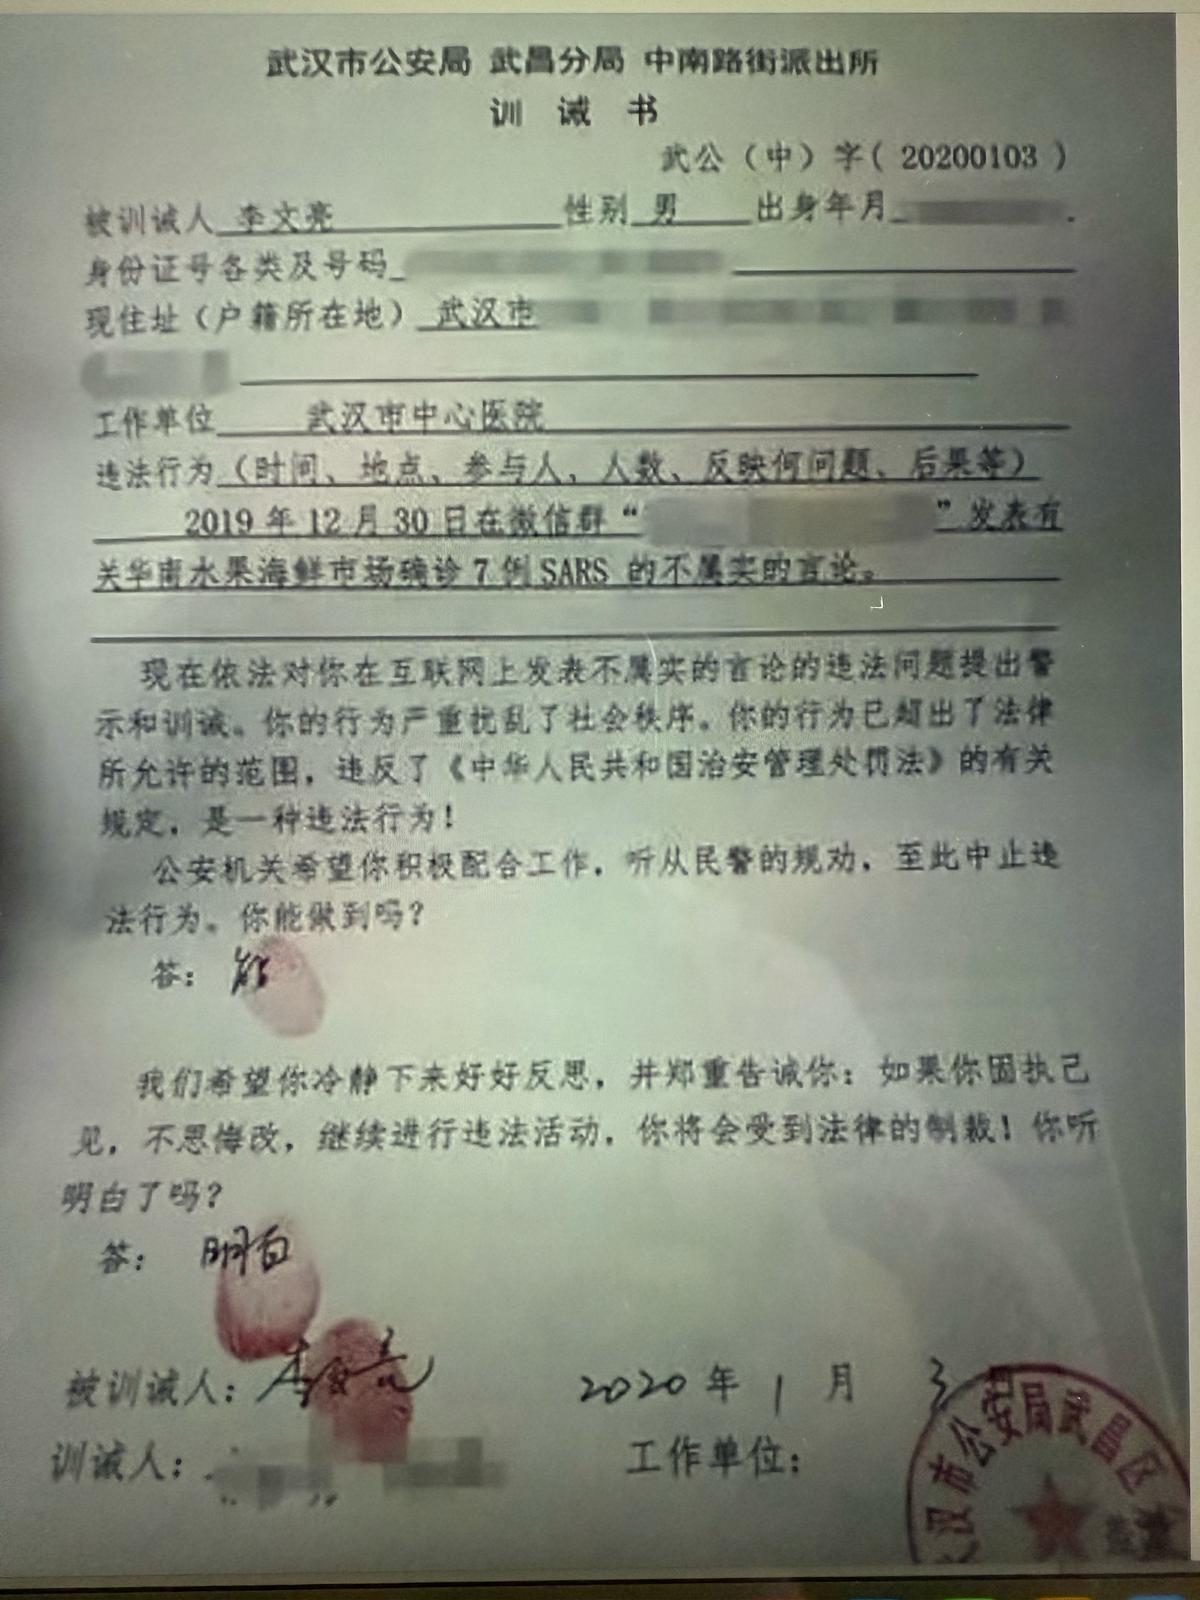 武汉市公安局 武昌分局 中南路街派出所
训 诫 书
武公（中）字（20200103）
被训诫人 李文亮 性别 男 出身年月
身份证号各类及号码
现住址（户籍所在地） 武汉市
工作单位 武汉市中心医院
违法行为（时间、地点、参与人、人数、反映何问题、后果等）
2019年12月30日在微信群“ ”发表有
关华南水果海鲜市场确诊7例SARS的不属实的言论。
现在依法对你在互联网上发表不属实的言论的违法问题提出警
示和训诫。你的行为严重扰乱了社会秩序。你的行为已超出了法律
所允许的范围，违反了《中华人民共和国治安管理处罚法》的有关
规定，是一种违法行为！
公安机关希望你积极配合工作，听从民警的规劝，至此中止违
法行为。你能做到吗？
答：能
我们希望你冷静下来好好反思，并郑重告诫你：如果你固执己
见，不思悔改，继续进行违法活动，你将会受到法律的制裁！你听
明白了吗？
答：明白
被训诫人：李文亮 2020年1月3日
训诫人： 工作单位：
汉市公安局武昌区